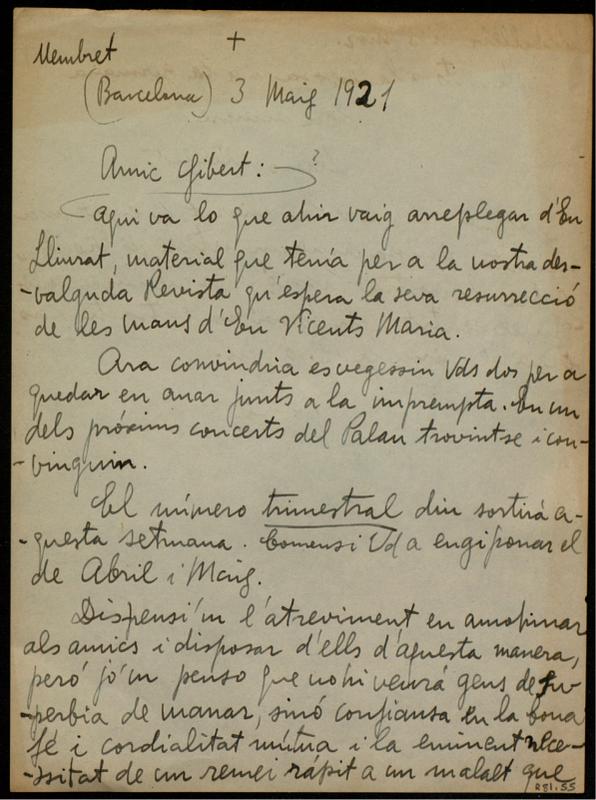 Membret +
(Barcelona) 3 Maig 1921
Amic Gibert: ?
Aqui va lo que ahir vaig arreplegar d'En
Lliurat, material que tenía per a la nostra des-
-valguda Revista qu'espera la seva resurrecció
de les mans d'En Vicents Maria.
Ara convindria es vegessin Vds dos per a
quedar en anar junts a la imprempta. En un
dels próxims concerts del Palau trovintse i con-
-vinguin.
El número trimestral diu sortirá a-
-questa setmana. Comensi Vd a engiponar el
de Abril i Maig.
Dispensi'm l'atreviment en amohinar
als amics i disposar d'ells d'aquesta manera,
peró jo'm penso que no hi veurá gens de su-
-perbia de manar, sinó confiansa en la bona
fé i cordialitat mútua i la eminent nece-
-ssitat de un remei rápit a un malalt que
R81.55